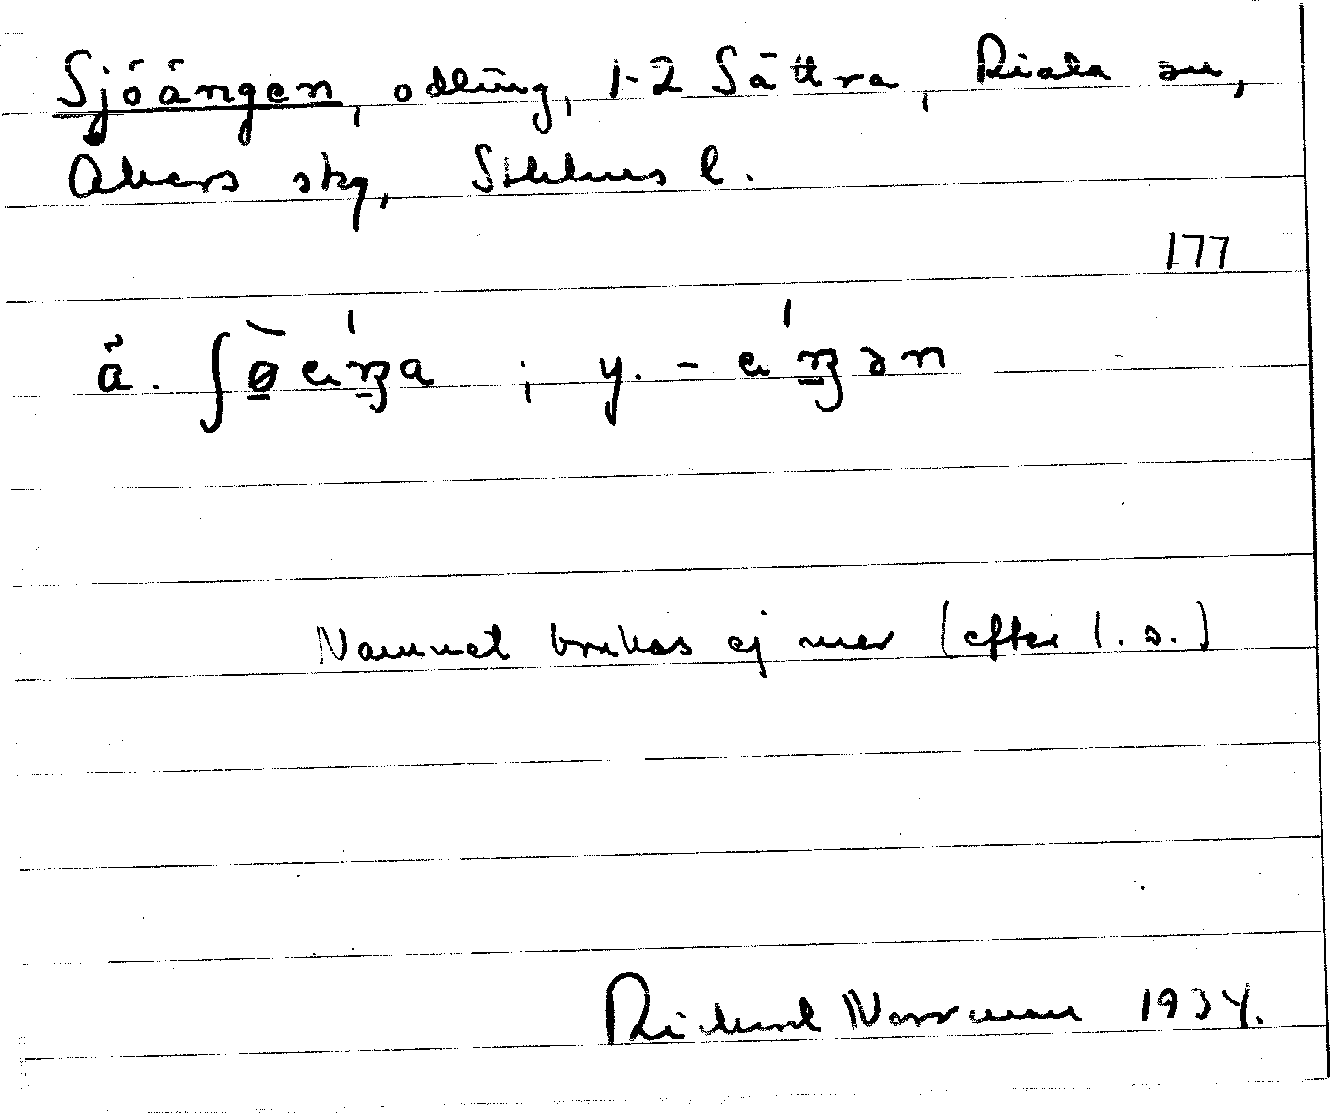 Sjöängen, odling, 1-2 Sättra, Riala sn,
Åkers skg, Sthlms l.
177
ä. ʃø̀eŋa ; y. - eŋən
Namnet brukas ej mer (efter l. s.)
Rickard Norrman 1934.